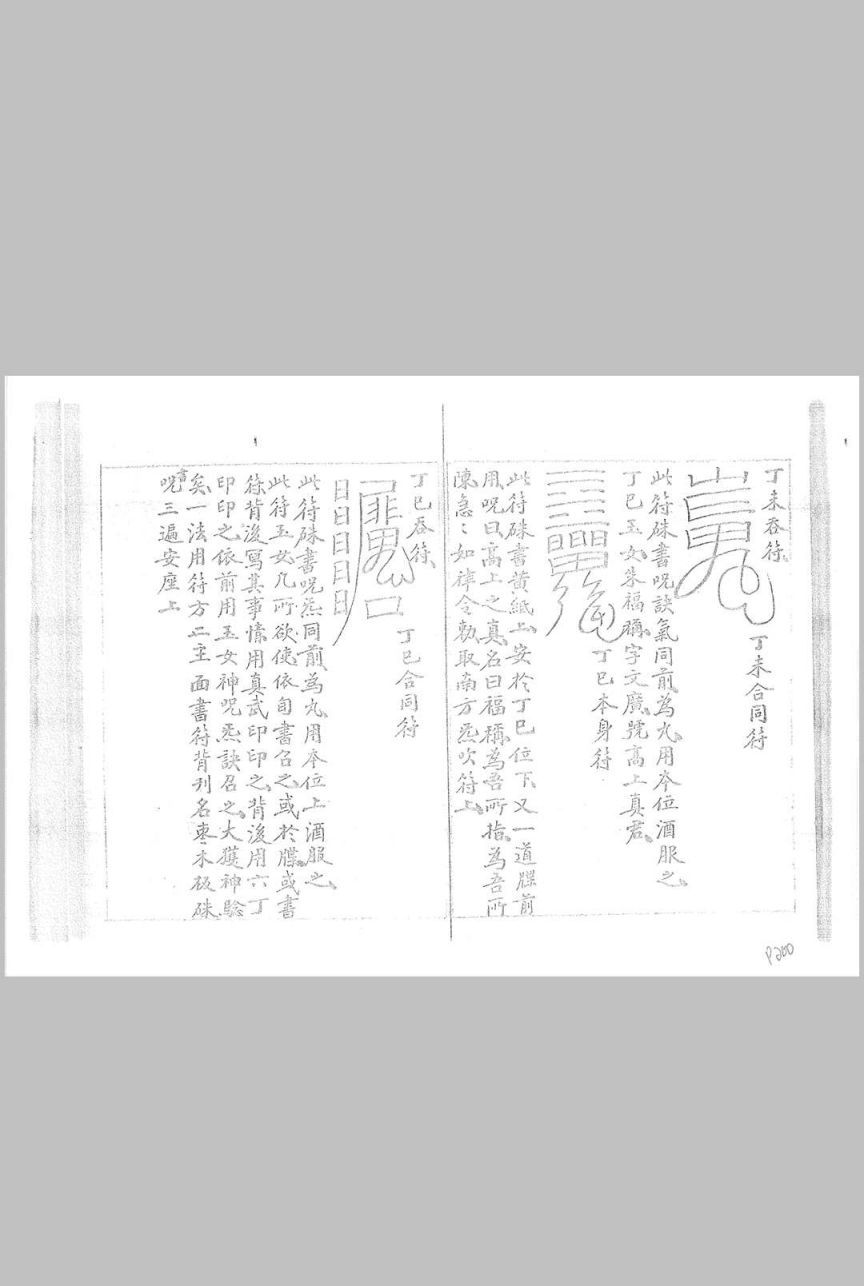 丁未吞符
丁未合同符
此符硃書呪訣氣同前為丸用本位酒服之
丁巳玉女朱福稱字文廣號高上真君
丁巳本身符
此符硃書黄紙上安於丁巳位下又一道牒前
用呪曰高上之真名曰福稱為吾所指為吾所
陳急〻如律令勅取南方炁吹符上
丁巳吞符
丁巳合同符
日日日日日
此符硃書呪炁同前為丸用本位上酒服之
此符玉女凡所欲使依旬書召之或於牒或書
符背後寫其事情用真武印印之背後用六丁
印印之依前用玉女神呪炁訣召之大獲神驗
矣一法用符方二主面書符背刋名棗木板硃
書呪三遍安座上
P200